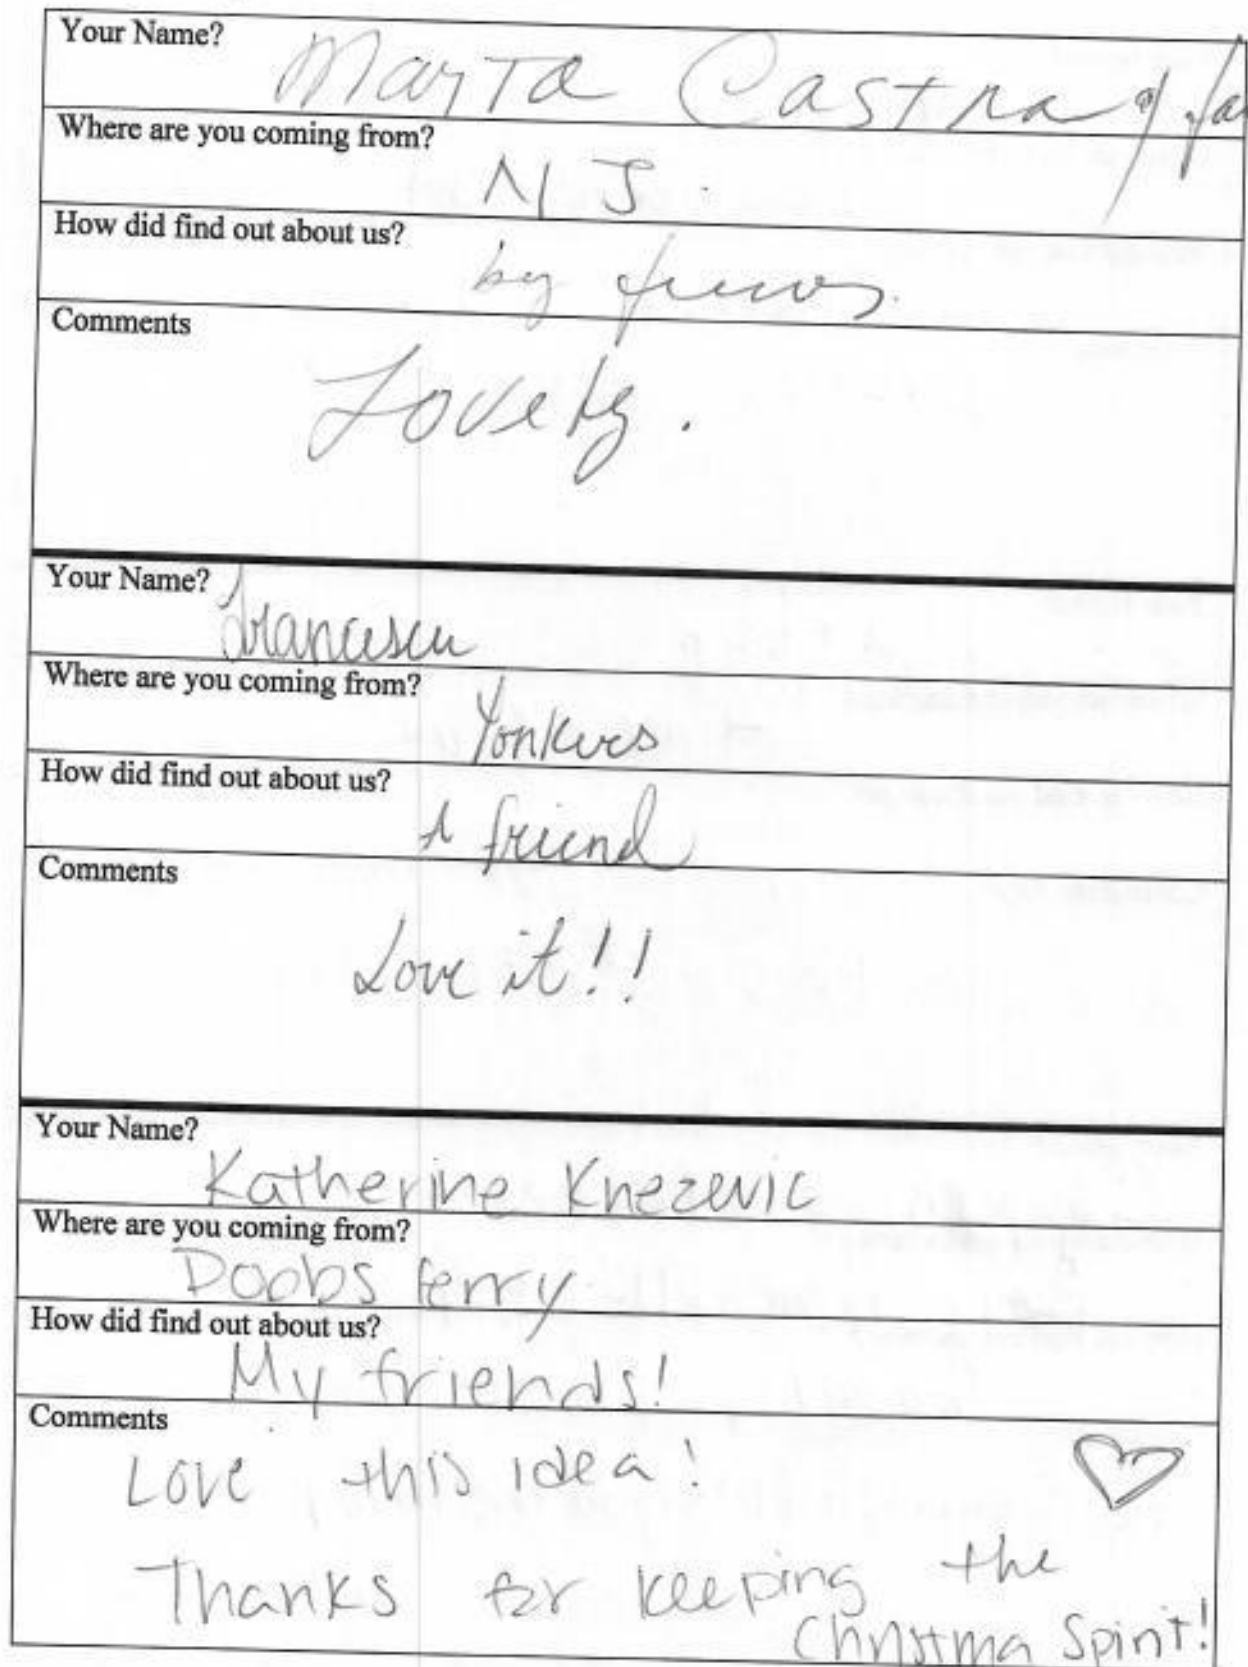 Your Name?
Marta Castra y
Where are you coming from?
NJ.
How did find out about us?
by
Comments
Lovely.
Your Name?
Francesca
Where are you coming from?
Yonkers
How did find out about us?
A friend
Comments
Love it!!
Your Name?
Katherine Knezevic
Where are you coming from?
Doobs ferry
How did find out about us?
My friends!
Comments
Love this idea!
Thanks for keeping the
Christma Spirit!